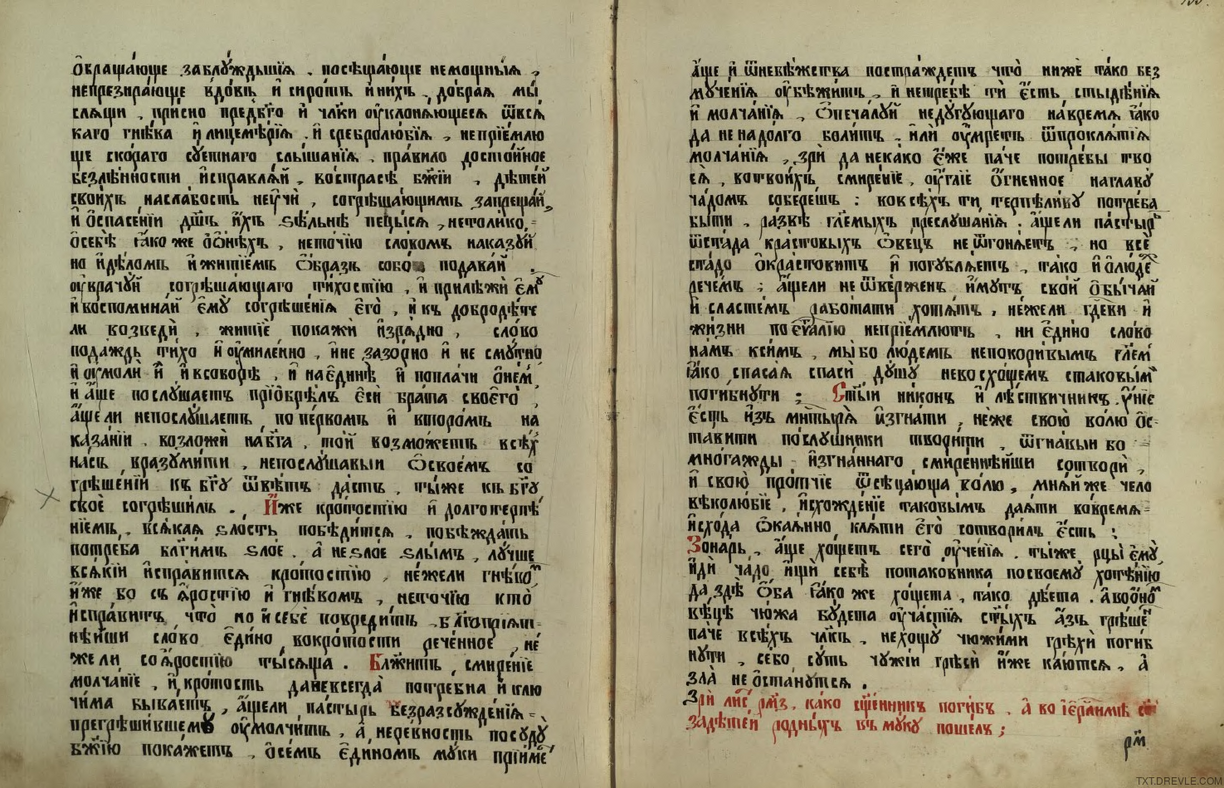 ѡ҆браща́юще заблꙋ́ждьшїѧ, посѣща́юще немощны́ѧ,
непрезира́юще вдовъ̀ и҆ сиро́тъ и҆ ни́хъ, до́браѧ мы́
слѧщи, при́сно пред̾бг҃о и҆ чл҃ки ᲂу҆клонѧ́ющесѧ ѿвсѧ́
каго гнѣ́ва и҆ лицемѣ́рїѧ, и҆ сребролю́бїѧ, непрїе́млю
ще ско́раго сꙋ́етнаго слы́шанїѧ, пра́вило досто́йное
без̾лѣ́нности и҆справлѧ́й, вострасѣ̀ бж҃їй, дѣте́й
свои́хъ насла́бость неꙋчѝ, согрѣша́ющимъ запреща́й,
и҆ ѡ҆спасе́нїи дш҃ъ и҆́хъ ѕѣ́льнѣ пецы́сѧ, нето́лико
ѡ҆себѣ̀ ꙗ҆́коже ѡ҆ѻ҆нѣ́хъ, нето́чїю сло́вомъ наказꙋ́й
но и҆ дѣ́ломъ и҆ житїе́мъ ѡ҆́бразъ собо́ю подава́й,
ᲂу҆врачꙋ́й согрѣша́ющаго ти́хостїю, и҆ прилѣжѝ є҆мꙋ̀
и҆ воспомина́й є҆мꙋ̀ согрѣше́нїѧ є҆гѡ̀, и҆ къ добродѣ́те
ли возведѝ, житїѐ покажѝ и҆зрѧ́дно, сло́во
пода́ждь ти́хо и҆ ᲂу҆миле́нно, и҆ не зазо́рно и҆ не смꙋ́тно
и҆ ᲂу҆молѝ и҆ и҆ всобо́рѣ, и҆ на є҆ди́нѣ и҆ попла́чи ѡ҆ не́м
и҆ а҆́ще послꙋ́шаетъ прїѡбрѣ́лъ є҆сѝ бра́та своего̀,
а҆́щели непослꙋ́шаетъ, попе́рвомъ и҆ второ́мъ на
каза́нїи, возложѝ на бг҃а, то́й возмо́жетъ всѣ́х
на́съ вразꙋми́ти, непослꙋ́шавыи ѡ҆свое́мъ со
грѣше́нїи къ бг҃ꙋ ѿвѣ́тъ да́стъ, ты́же къ бг҃ꙋ
своѐ согрѣши́лъ. И҆́же кро́тостїю и҆ долготерпѣ
нїемъ, всѧ́каѧ ѕло́сть побѣди́тсѧ, побѣжда́ть
потре́ба бл҃ги́мъ ѕло́е, а҆ не ѕло́е ѕлы́мъ, лꙋ́чше
всѧ́кїй и҆спра́витсѧ кро́тостїю, не́жели гнѣ́вом
и҆́же бо съ ꙗ҆́ростїю и҆ гнѣ́вомъ, нето́чїю кто̀
и҆спра́витъ, что̀ но и҆ себѐ повреди́тъ, благопрїѧт
нѣ́йши сло́во є҆ди́но, вокро́тости рече́нное, не́
жели соꙗ҆́ростїю ты́сѧща. Бл҃жи́тъ, смире́нїе
молча́нїе, и҆ кро́тость да невсегда̀ потре́бна и҆ хлю
чи́ма быва́етъ, а҆́щели па́стырь безразсꙋжде́нїѧ
прегрѣши́вшемꙋ ᲂу҆молчи́тъ, а҆ не ре́вность посꙋдꙋ̀
бж҃їю пока́жетъ, ѡ҆се́мъ є҆ди́номъ мꙋ́ки прїи́ме
а҆́ще и҆ ѿневѣ́жества постра́ждетъ что̀ нижѐ та́ко без
мꙋче́нїѧ ᲂу҆бѣжи́тъ, и҆ нетре́бѣ тѝ є҆́сть, стыдѣ́нїѧ
и҆ молча́нїѧ, ѡ҆печа́лꙋй недꙋ́гꙋющаго навре́мѧ ꙗ҆́ко
да ненадо́лго боли́тъ, и҆лѝ ᲂу҆́мретъ ѿпроклѧ́тїѧ
молча́нїѧ, зрѝ да не́како є҆́же па́че потре́бы тво
еѧ̀, вотвои́хъ смире́нїе, ᲂу҆́глїе ѻ҆́гненное наглавꙋ̀
ча́домъ собере́шъ: вовсѣ́хъ ти терпели́вꙋ потре́ба
бы́ти, ра́звѣ гл҃емыхъ преслꙋша́нїѧ. а҆́щели па́стыр
ѿста́да кра́стовыхъ ѻ҆ве́цъ не ѿгонѧ́етъ; но всѐ
ста́до ѻ҆кра́стовитъ и҆ погꙋблѧ́етъ, та́ко и҆ ѡ҆ лю́де
рече́мъ; а҆́щели не ѿве́рженъ и҆́мꙋтъ сво́й ѻ҆бы́чай
и҆ сласте́мъ рабо́тати хотѧ́тъ, не́жели гд҇еви и҆
жи́зни поеѵⷢ҇а́лїю непрїе́млютъ, ни є҆ди́но сло́во
на́мъ кси́мъ, мы́бо лю́демъ непокори́вымъ гл҃ем
ꙗ҆́ко спаса́ѧ спасѝ дꙋ́шꙋ невосхо́щемъ стаковы́м
поги́бнꙋти; Ст҃ы́и ни́кон и҆ лѣ́ствичникъ. ᲂу҆́нѣе
є҆́сть и҆з̾ мн҃тырѧ̀ и҆згна́ти, не́же свою̀ во́лю ѡ҆с
та́вити послꙋ́шники твори́ти, ѿгна́выи бо
мно́гажды, и҆згна́ннаго, смире́ннѣйши сотворѝ,
и҆ свою̀ про́тчїе ѿсѣца́юща во́лю, мнѧ́йже чело
вѣколю́бїе, и҆схожде́нїе таковы́мъ даѧ́ти вовре́мѧ
и҆схо́да ѡ҆каѧ́нно, клѧ́ти є҆го̀ сотвори́лъ є҆́сть;
Зонаръ, а҆́ще хо́щетъ сего̀ ᲂу҆че́нїѧ, ты́же, рцы̀ є҆мꙋ̀
и҆дѝ ча́до и҆щѝ себѣ̀ потако́вника посвоемꙋ̀ хотѣ́нїю
да здѣ̀ ѻ҆́ба ꙗ҆́коже хо́щета, та́ко дѣ́ета. а҆ во ѻ҆но
вѣ́цѣ чю́жа бꙋ́дета ᲂу҆ча́стїѧ ст҃ы́хъ а҆́зъ грѣ́ше
па́че всѣ́хъ чл҃къ, нехощꙋ̀ чю́жими грѣхѝ поги́б
нꙋти, се́бо сꙋ́ть чꙋ́жїи грѣсѝ и҆́же ка́ютсѧ, а҆
зла̀ не ѡ҆ста́нꙋтсѧ.
Зрѝ ли́с рм҃з, ка́ко сщ҃е́нникъ поги́бъ, а҆ во і҆ерⷭ҇ли́мѣ
заⷣѣте́й ро́дныхъ въ мꙋ́кꙋ поше́лъ;
рм҃
TXT.DREVLE.COM